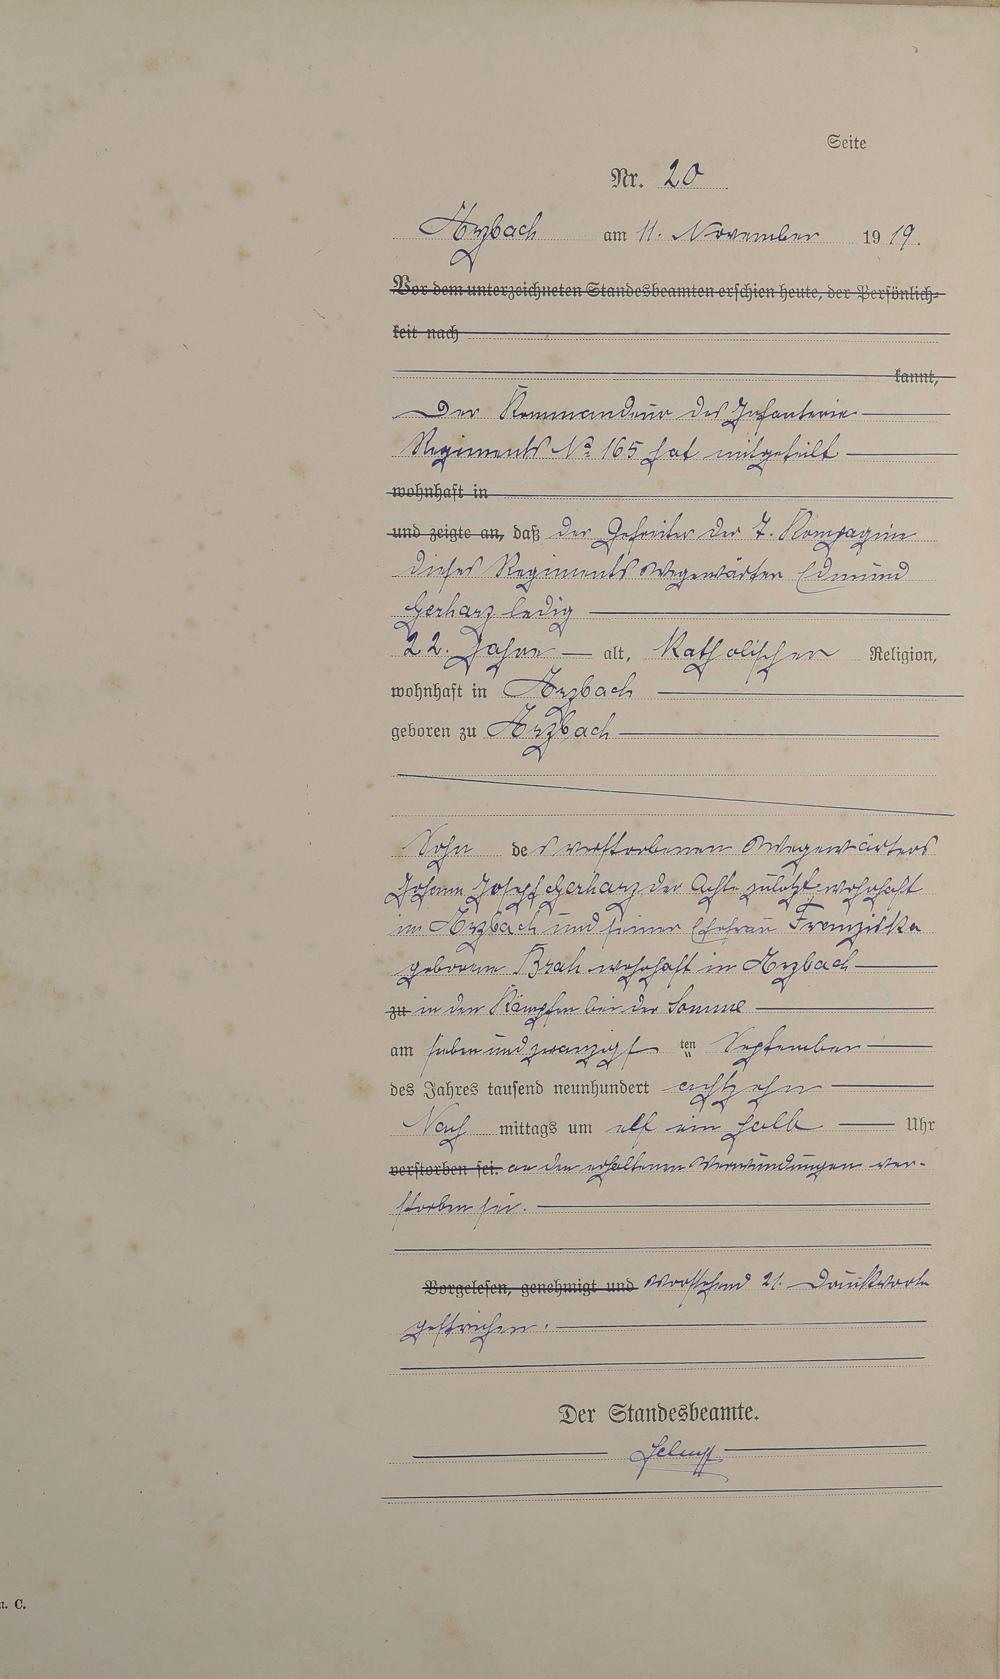 Seite
Nr. 20
Arzbach am 11. November 1919.
Vor dem unterzeichneten Standesbeamten erschien heute, der Persönlich-
keit nach
kannt,
Der Kommandeur des Infanterie
Regiments No 165 hat mitgeteilt
wohnhaft in
und zeigte an, daß der Gefreiter der 7. Kompagnie
dieses Regiments Wegewärter Edmund
Gerharz ledig
22. Jahre alt, Katholischer Religion,
wohnhaft in Arzbach
geboren zu Arzbach
Sohn des verstorbenen Wegewärters
Johann Joseph Gerharz der Achte zuletzt wohnhaft
in Arzbach und seiner Ehefrau Franziska
geborene Brah wohnhaft in Arzbach
zu in den Kämpfen bei der Somme
am sieben und zwanzigsten September
des Jahres tausend neunhundert achtzehn
Nach mittags um elf ein halb Uhr
verstorben sei. an den erhaltenen Verwundungen ver-
storben sei.
Vorgelesen, genehmigt und Vorstehend 21. Druckworte
gestrichen.
Der Standesbeamte.
n. C.